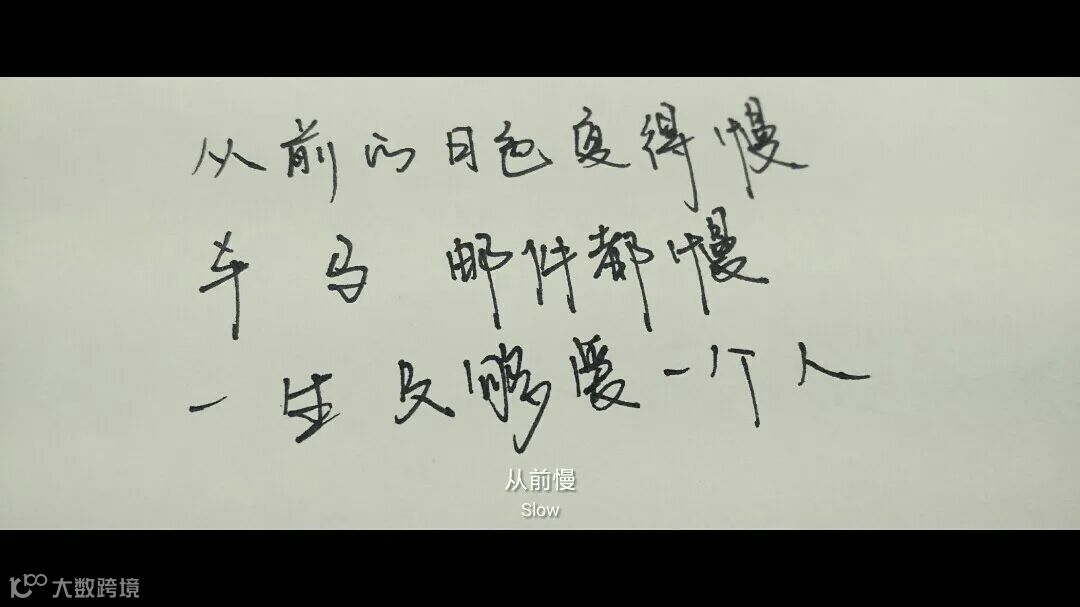 从前的日色变得慢
车 马 邮件都慢
一生只够爱一个人
从前慢
Slow
大数跨境